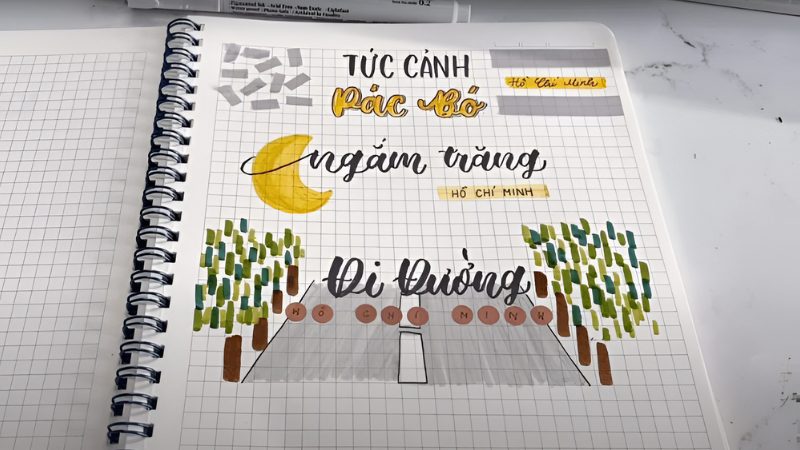 0.2
TỨC CẢNH
Pác Bó
Hồ Chí Minh
ngắm trăng
HỒ CHÍ MINH
Đi Đường
HỒ CHÍ MINH